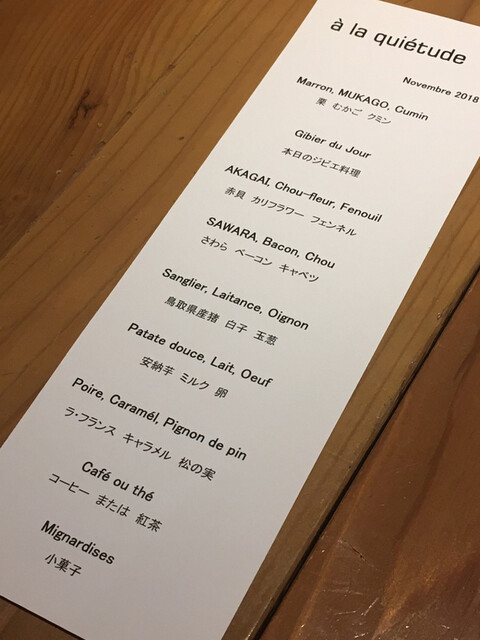 à la quiétude
Novembre 2018
Marron, MUKAGO, Cumin
栗 むかご クミン
Gibier du Jour
本日のジビエ料理
AKAGAI, Chou-fleur, Fenouil
赤貝 カリフラワー フェンネル
SAWARA, Bacon, Chou
さわら ベーコン キャベツ
Sanglier, Laitance, Oignon
鳥取県産猪 白子 玉葱
Patate douce, Lait, Oeuf
安納芋 ミルク 卵
Poire, Caramél, Pignon de pin
ラ・フランス キャラメル 松の実
Café ou thé
コーヒー または 紅茶
Mignardises
小菓子